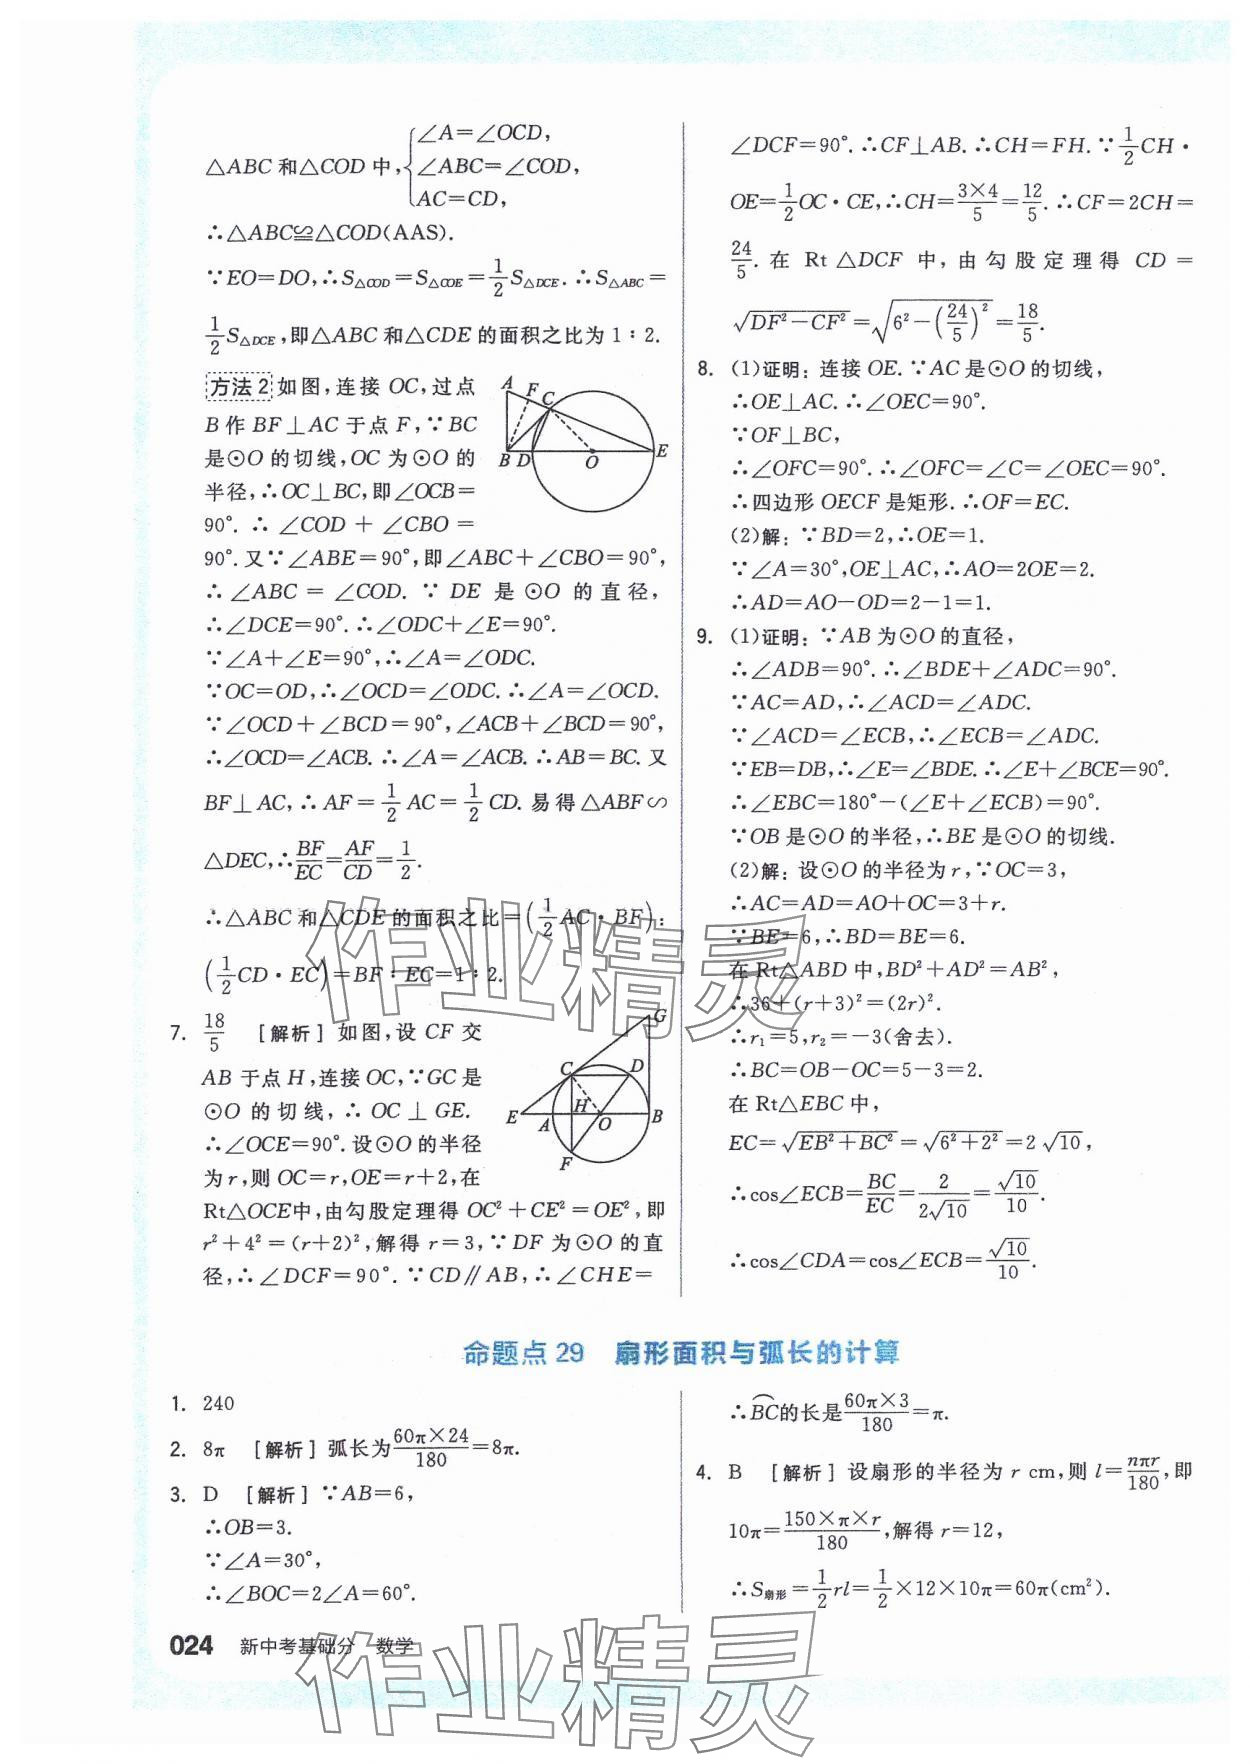 △ABC 和△COD 中,{∠A=∠OCD, ∠ABC=∠COD, AC=CD,
∴△ABC≌△COD(AAS).
∵EO=DO,∴S△COD=S△COE=1/2 S△DCE.∴S△ABC=
1/2 S△DCE,即△ABC 和△CDE 的面积之比为 1∶2.
方法 2 如图,连接 OC,过点
B 作 BF⊥AC 于点 F,∵BC
是⊙O 的切线,OC 为⊙O 的
半径,∴OC⊥BC,即∠OCB=
90°.∴∠COD+∠CBO=
90°.又∵∠ABE=90°,即∠ABC+∠CBO=90°,
∴∠ABC=∠COD.∵DE 是⊙O 的直径,
∴∠DCE=90°.∴∠ODC+∠E=90°.
∵∠A+∠E=90°,∴∠A=∠ODC.
∵OC=OD,∴∠OCD=∠ODC.∴∠A=∠OCD.
∵∠OCD+∠BCD=90°,∠ACB+∠BCD=90°,
∴∠OCD=∠ACB.∴∠A=∠ACB.∴AB=BC.又
BF⊥AC,∴AF=1/2 AC=1/2 CD.易得△ABF∽
△DEC,∴BF/EC=AF/CD=1/2.
∴△ABC 和△CDE 的面积之比=(1/2 AC·BF)∶
(1/2 CD·EC)=BF∶EC=1∶2.
A F C B D O E
7. 18/5 [解析] 如图,设 CF 交
AB 于点 H,连接 OC,∵GC 是
⊙O 的切线,∴OC⊥GE.
∴∠OCE=90°.设⊙O 的半径
为 r,则 OC=r,OE=r+2,在
Rt△OCE中,由勾股定理得 OC²+CE²=OE²,即
r²+4²=(r+2)²,解得 r=3,∵DF 为⊙O 的直
径,∴∠DCF=90°.∵CD∥AB,∴∠CHE=
G C D E A H O B F
∠DCF=90°.∴CF⊥AB.∴CH=FH.∵1/2 CH·
OE=1/2 OC·CE,∴CH=3×4/5=12/5.∴CF=2CH=
24/5.在 Rt△DCF 中,由勾股定理得 CD=
√(DF²-CF²)=√(6²-(24/5)²)=18/5.
8. (1)证明:连接 OE.∵AC 是⊙O 的切线,
∴OE⊥AC.∴∠OEC=90°.
∵OF⊥BC,
∴∠OFC=90°.∴∠OFC=∠C=∠OEC=90°.
∴四边形 OECF 是矩形.∴OF=EC.
(2)解:∵BD=2,∴OE=1.
∵∠A=30°,OE⊥AC,∴AO=2OE=2.
∴AD=AO-OD=2-1=1.
9. (1)证明:∵AB 为⊙O 的直径,
∴∠ADB=90°.∴∠BDE+∠ADC=90°.
∵AC=AD,∴∠ACD=∠ADC.
∵∠ACD=∠ECB,∴∠ECB=∠ADC.
∵EB=DB,∴∠E=∠BDE.∴∠E+∠BCE=90°.
∴∠EBC=180°-(∠E+∠ECB)=90°.
∵OB 是⊙O 的半径,∴BE 是⊙O 的切线.
(2)解:设⊙O 的半径为 r,∵OC=3,
∴AC=AD=AO+OC=3+r.
∵BE=6,∴BD=BE=6.
在 Rt△ABD 中,BD²+AD²=AB²,
∴36+(r+3)²=(2r)².
∴r₁=5,r₂=-3(舍去).
∴BC=OB-OC=5-3=2.
在 Rt△EBC 中,
EC=√(EB²+BC²)=√(6²+2²)=2√10,
∴cos∠ECB=BC/EC=2/(2√10)=√10/10.
∴cos∠CDA=cos∠ECB=√10/10.
命题点 29 扇形面积与弧长的计算
1. 240
2. 8π [解析] 弧长为60π×24/180=8π.
3. D [解析] ∵AB=6,
∴OB=3.
∵∠A=30°,
∴∠BOC=2∠A=60°.
∴⌒BC的长是60π×3/180=π.
4. B [解析] 设扇形的半径为 r cm,则 l=nπr/180,即
10π=150×π×r/180,解得 r=12,
∴S扇形=1/2 rl=1/2×12×10π=60π(cm²).
024 新中考基础分 数学
作业精灵
作业精灵